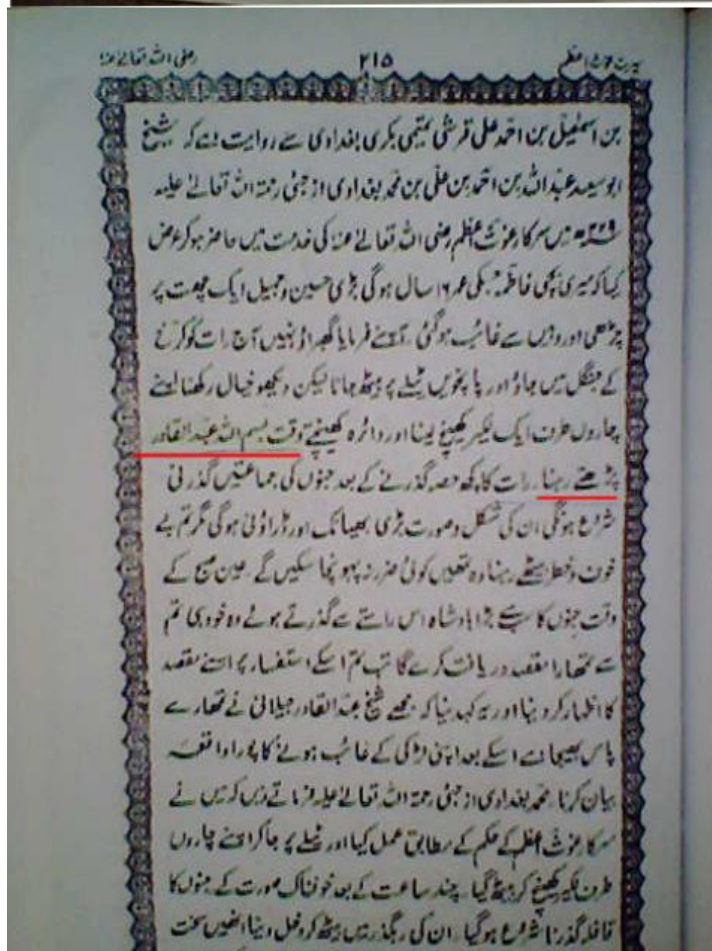 سیرت غوث اعظم ۲۱۵ رضی اللہ تعالےٰ عنہ
بن اسمٰعیل بن احمد علی قرشی تمیمی بکری بغدادی سے روایت ہے کہ شیخ
ابو سعید عبداللہ بن احمد بن علی بن محمد بغدادی ازجئی رحمۃ اللہ تعالےٰ علیہ
میں سرکار غوث اعظم رضی اللہ تعالےٰ عنہ کی خدمت میں حاضر ہوکر عرض
کیا کہ میری بچی فاطمہ جسکی عمر ۱۶ سال ہوگی بڑی حسین و جمیل ایک چھت پر
چڑھی اور وہیں سے غائب ہوگئی۔ آپنے فرمایا گھبراؤ نہیں آج رات کو کرخ
کے جنگل میں جاؤ اور پانچویں ٹیلے پر بیٹھ جانا لیکن دیکھو خیال رکھنا اپنے
چاروں طرف ایک لکیر کھینچ لینا اور دائرہ کھینچتے وقت بسم اللہ عبد القادر
پڑھتے رہنا رات کا کچھ حصہ گذرنے کے بعد جنوں کی جماعتیں گذرنی
شروع ہونگی ان کی شکل و صورت بڑی بھیانک اور ڈراؤنی ہوگی مگر تم بے
خوف و خطر بیٹھے رہنا وہ تمھیں کوئی ضرر نہ پہونچا سکیں گے۔ عین صبح کے
وقت جنوں کا سبسے بڑا بادشاہ اس راستے سے گذرتے ہوئے وہ خود ہی تم
سے تمھارا مقصد دریافت کرے گا تب تم اسکے استفسار پر اپنے مقصد
کا اظہار کردینا اور یہ کہدینا کہ مجھے شیخ عبد القادر جیلانی نے تمھارے
پاس بھیجا ہے اسکے بعد اپنی لڑکی کے غائب ہونے کا پورا واقعہ
بیان کرنا۔ محمد بغدادی ازجئی رحمۃ اللہ تعالےٰ علیہ فرماتے ہیں کہ میں نے
سرکار غوث اعظم کے حکم کے مطابق عمل کیا اور ٹیلے پر جاکر اپنے چاروں
طرف لکیر کھینچ کر بیٹھ گیا۔ چند ساعت کے بعد خوفناک صورت کے جنوں کا
قافلہ گذرنا شروع ہوگیا۔ ان کی رہگذر میں بیٹھ کر دخل دینا انھیں سخت